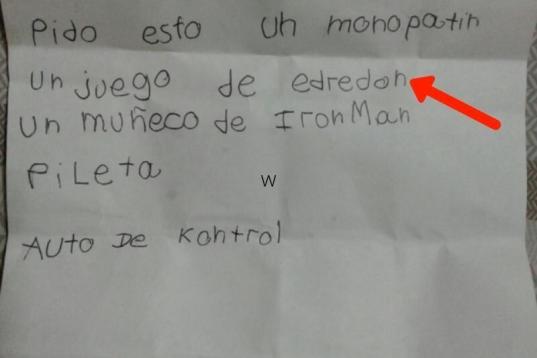 Pido esto un monopatin
Un juego de edredon
un muñeco de IronMan
PiLeta
W
AUto De Kontrol